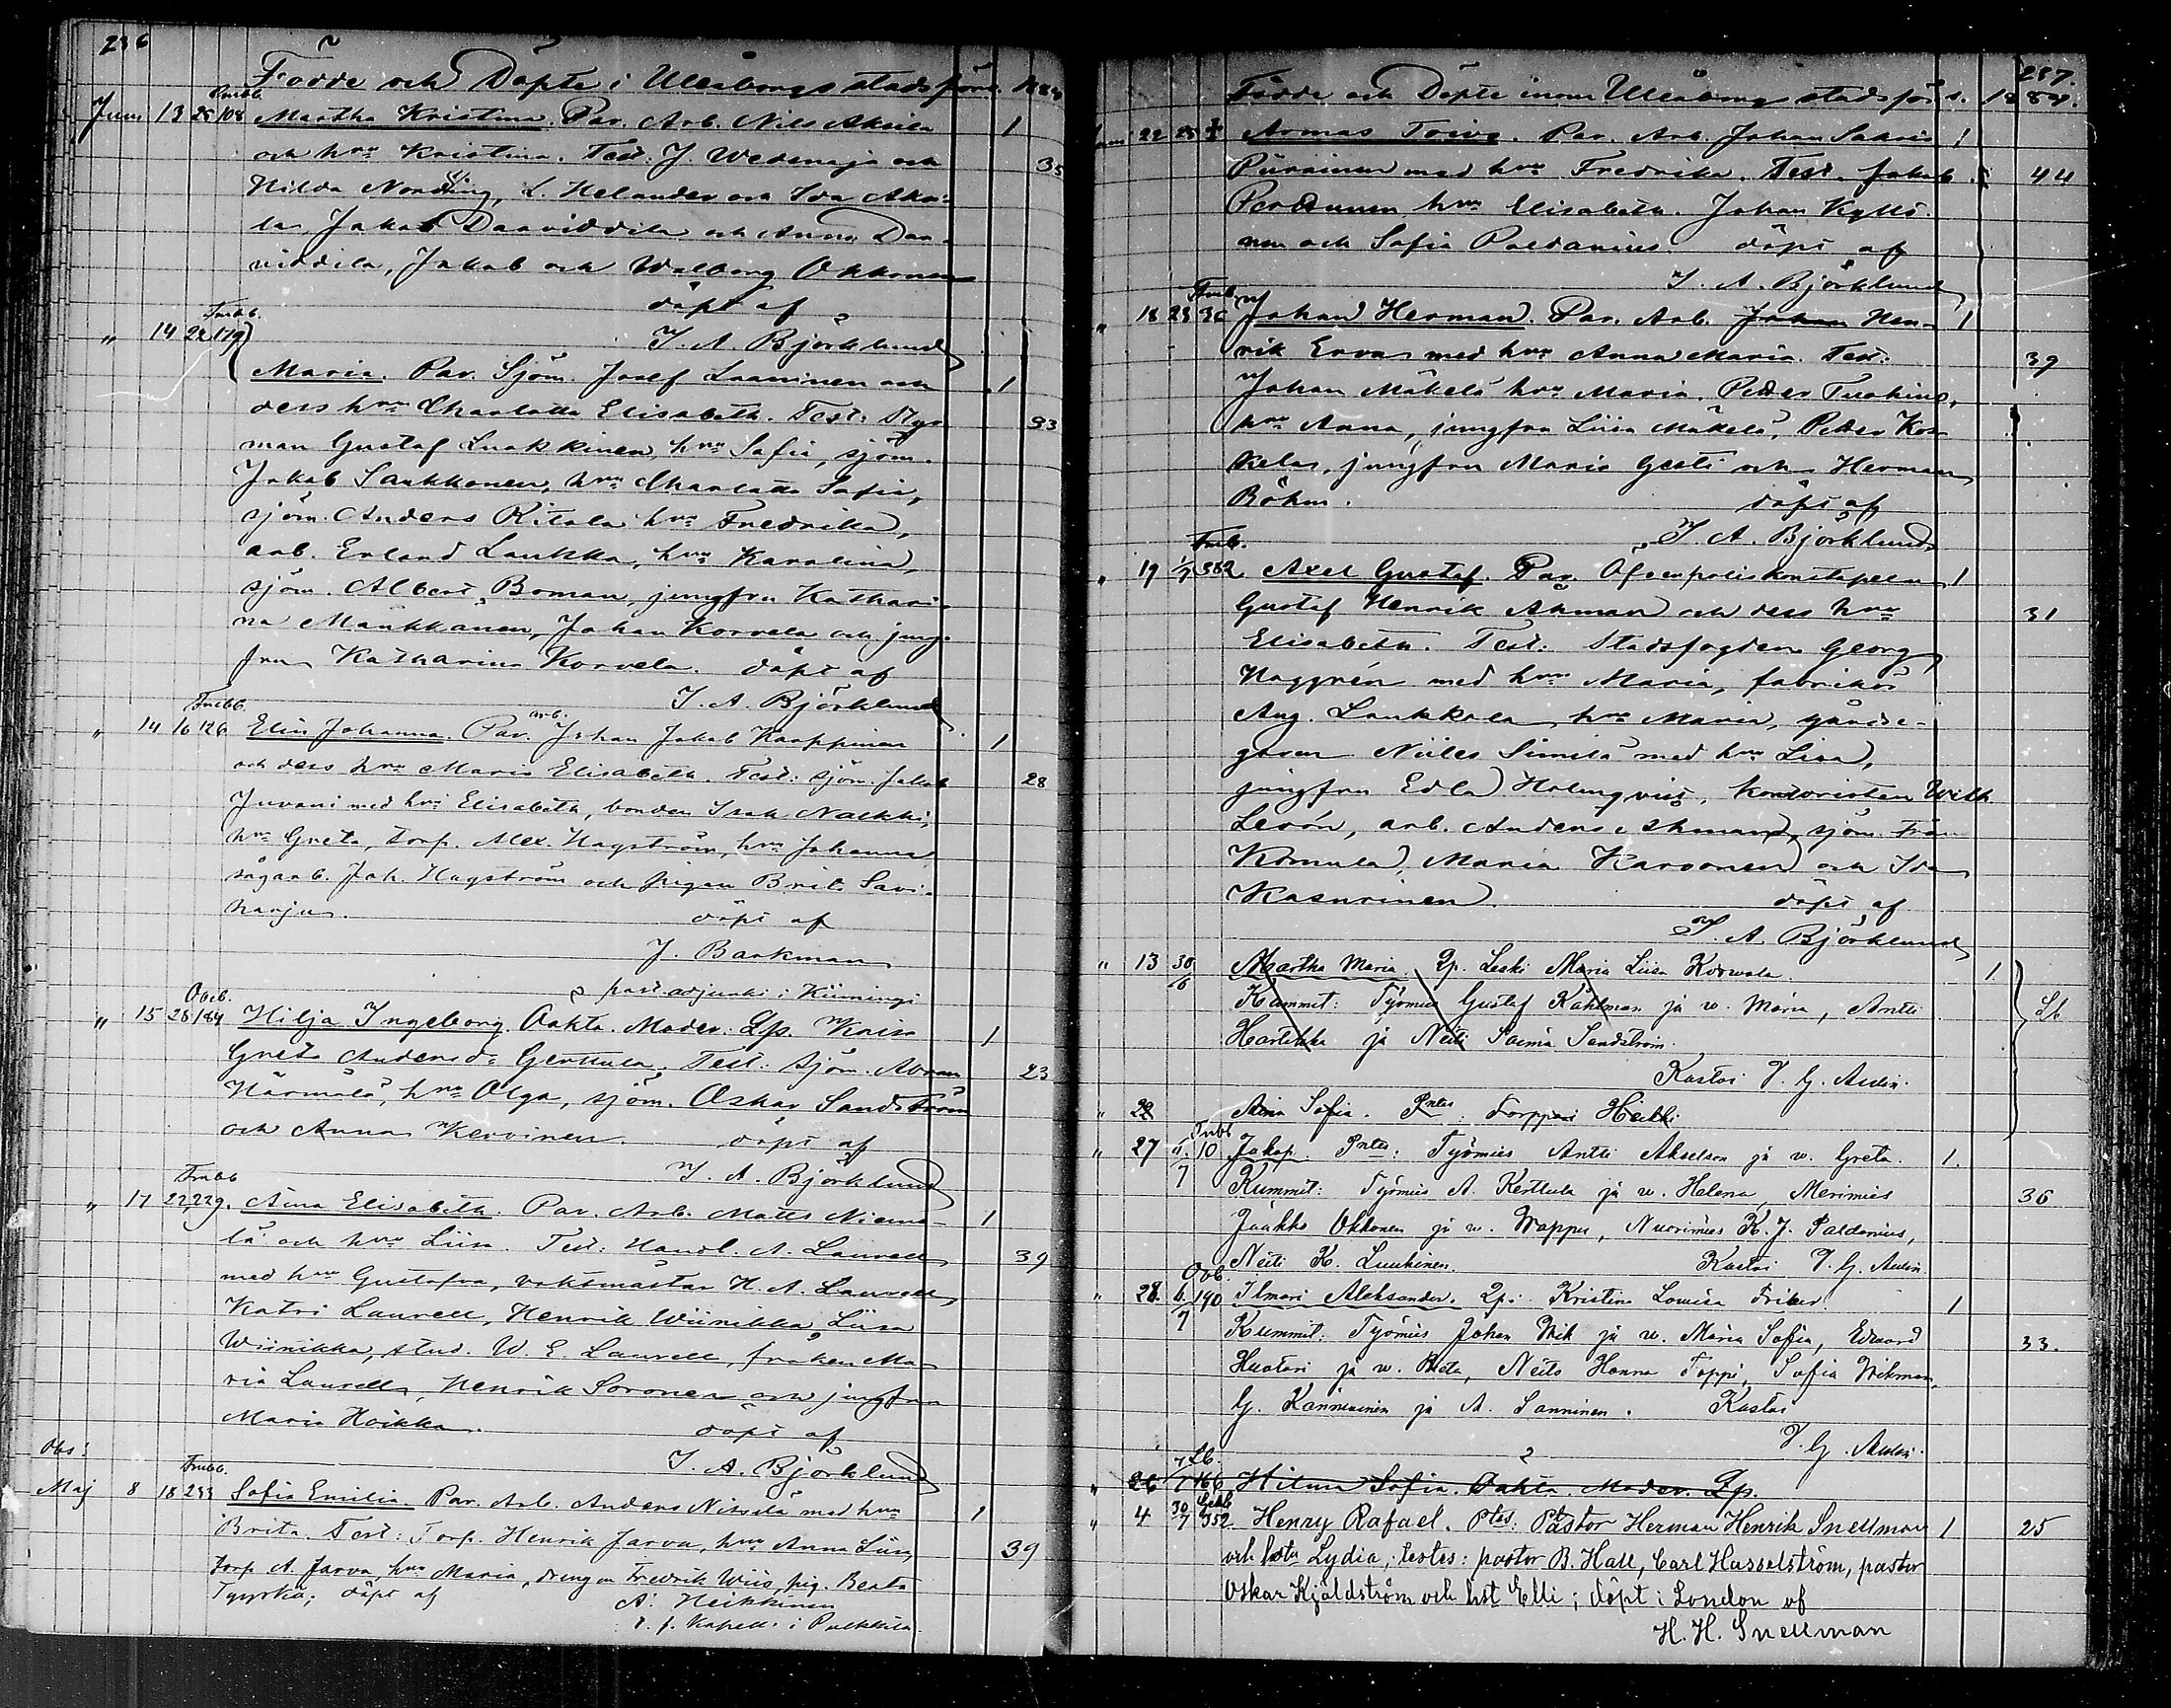 236
Födde och Döpte i Uleåborgs stadsförs. 1884
Fmbb.
Juni 13 25 108 Martha Kristina. Par. Arb. Nils Akola 1
och hru Kristina. Test: J. Wetenoja och 35
Hilda Nording, L. Helander och Ida Ako-
la Jakob Daaviddila och Anna Daa-
viddila, Jakob och Walborg Okkonen
döpt af
Fmbb.
" 14 22 179 J. A. Björklund
Maria. Par. Sjöm. Josef Laaninen och 1
dess hru Charlotta Elisabeth. Test: Styr- 33
man Gustaf Luukkinen, hru Sofia, sjöm.
Jakob Saukkonen, hru Charlotta Sofia,
sjöm. Anders Ritola hru Fredrika,
arb. Erland Laukka, hru Karolina,
sjöm. Albert Boman, jungfru Kathari-
na Mänkkänen, Johan Korvela och jung-
fru Katharina Korvela. döpt af
Fmbb. J. A. Björklund
" 14 16 126 Elin Johanna. Par. arb. Johan Jakob Kaappinen 1
och dess hru Maria Elisabeth. Test: sjöm. Jakob 28
Juvani med hru Elisabeth, bonden Isak Nalkki,
hru Greta, torp. Alex. Hagström, hru Johanna
sågarb. Joh. Hagström och pigan Brita Savi-
harju. döpt af
J. Barkman
past. adjunkt i Kiimingi
Obeb.
" 15 28 184 Hilja Ingeborg. Oäkta. Moder: Lp. Kaisa 1
Greta Andersd:r Gerttula. Test: sjöm. Abram 23
Härmälä, hru Olga, sjöm. Oskar Sandström
och Anna Kervinen. döpt af
Fmbb J. A. Björklund
" 17 22 229. Aina Elisabeth. Par. Arb. Matts Nieme- 1
lä och hru Liisa. Test: Handl. A. Laurell 39
med hru Gustafva, vaktmästar H. A. Laurell,
Katri Laurell, Henrik Wiinikka, Liisa
Wiinikka, stud. W. E. Laurell, fröken Ma-
ria Laurell, Henrik Soronen och jungfru
Maria Hoikka. döpt af
Obs: J. A. Björklund
Fmbb.
Maj 8 18 233 Sofia Emilia. Par. Arb. Anders Niskala med hru 1
Brita. Test: Torp. Henrik Jarva, hru Anna Liisa, 39
torp A. Jarva, hru Maria, drengen Fredrik Wiio, pig. Beata
Tyyskä; döpt af A. Heikkinen
v. f. Kapell. i Pulkkila.
237.
Födde och Döpte inom Uleåborg stadsförs. 1884.
Juni 22 25 + Armas Toivo. Par. Arb. Johan Sakris 1
Piirainen med hru Fredrika. Test. Jakob 44
Perttunen hru Elisabeth. Johan Kyllö-
nen och Sofia Paldanius. döpt af
J. A. Björklund
Fmb.
" 18 23 36 Johan Herman. Par. Arb. Johan Hen- 1
rik Ervas med hru Anna Maria. Test: 39
Johan Mäkelä hru Maria, Petter Tuohino,
hru Anna, jungfru Liisa Mäkelä, Petter Kos-
kela, jungfru Maria Gesti och Herman
Böhm. döpt af
Fmb. J. A. Björklund
" 19 1/7 382 Axel Gustaf. Par. Öfverpoliskonstapeln 1
Gustaf Henrik Åhman och dess hru 31
Elisabeth. Test: Stadsfogden Georg
Haggrén med hru Maria, fabrikör
Aug. Laukkala, hru Maria, gårdse-
garen Niiles Simila med hru Lisa,
jungfru Edla Holmqvist, kontoristen Wilh
Levón, arb. Anders Åhman, sjöm. Fran
Komula, Maria Karvonen och Ida
Kasurinen. döpt af
J. A. Björklund
" 13 30/6 Martha Maria. Lp. Leski Maria Liisa Korwala. 1
Kummit: Työmies Gustaf Kåhlman ja w. Maria, Antti Sb
Hartikka ja Neiti Saima Sandström.
Kastoi V. G. Aulin.
" 22 Aina Sofia. Pntes: Torppari Heikki
Fmbb
" 27 11/7 10 Jakop. Pntes: Työmies Antti Akselson ja w. Greta. 1.
Kummit: Työmies A. Kerttula ja w. Helena, Merimies 36
Jaakko Okkonen ja w. Wappu, Nuorimies K. J. Paldanius,
Neiti K. Luukinen. Kastoi V. G. Aulin.
Obb.
" 28. 6/7 190 Ilmari Aleksander. Lp: Kristina Lowisa Friber 1
Kummit: Työmies Johan Wik ja w. Maria Sofia, Edward 33.
Huotari ja w. Brita, Neito Hanna Toppi, Sofia Wikman,
G. Känninen ja A. Sanninen. Kastoi
V. G. Aulin.
Lb.
" 26 166 Hilma Sofia. Oäkta. Moder. Lp.
" 4 30/7 352 Henry Rafael. Ptes: Pastor Herman Henrik Snellman 1 25
och hstu Lydia; testes: pastor B. Hall, Carl Hasselström, pastor
Oskar Kjäldström och hst Elli; döpt i London af
H. H. Snellman